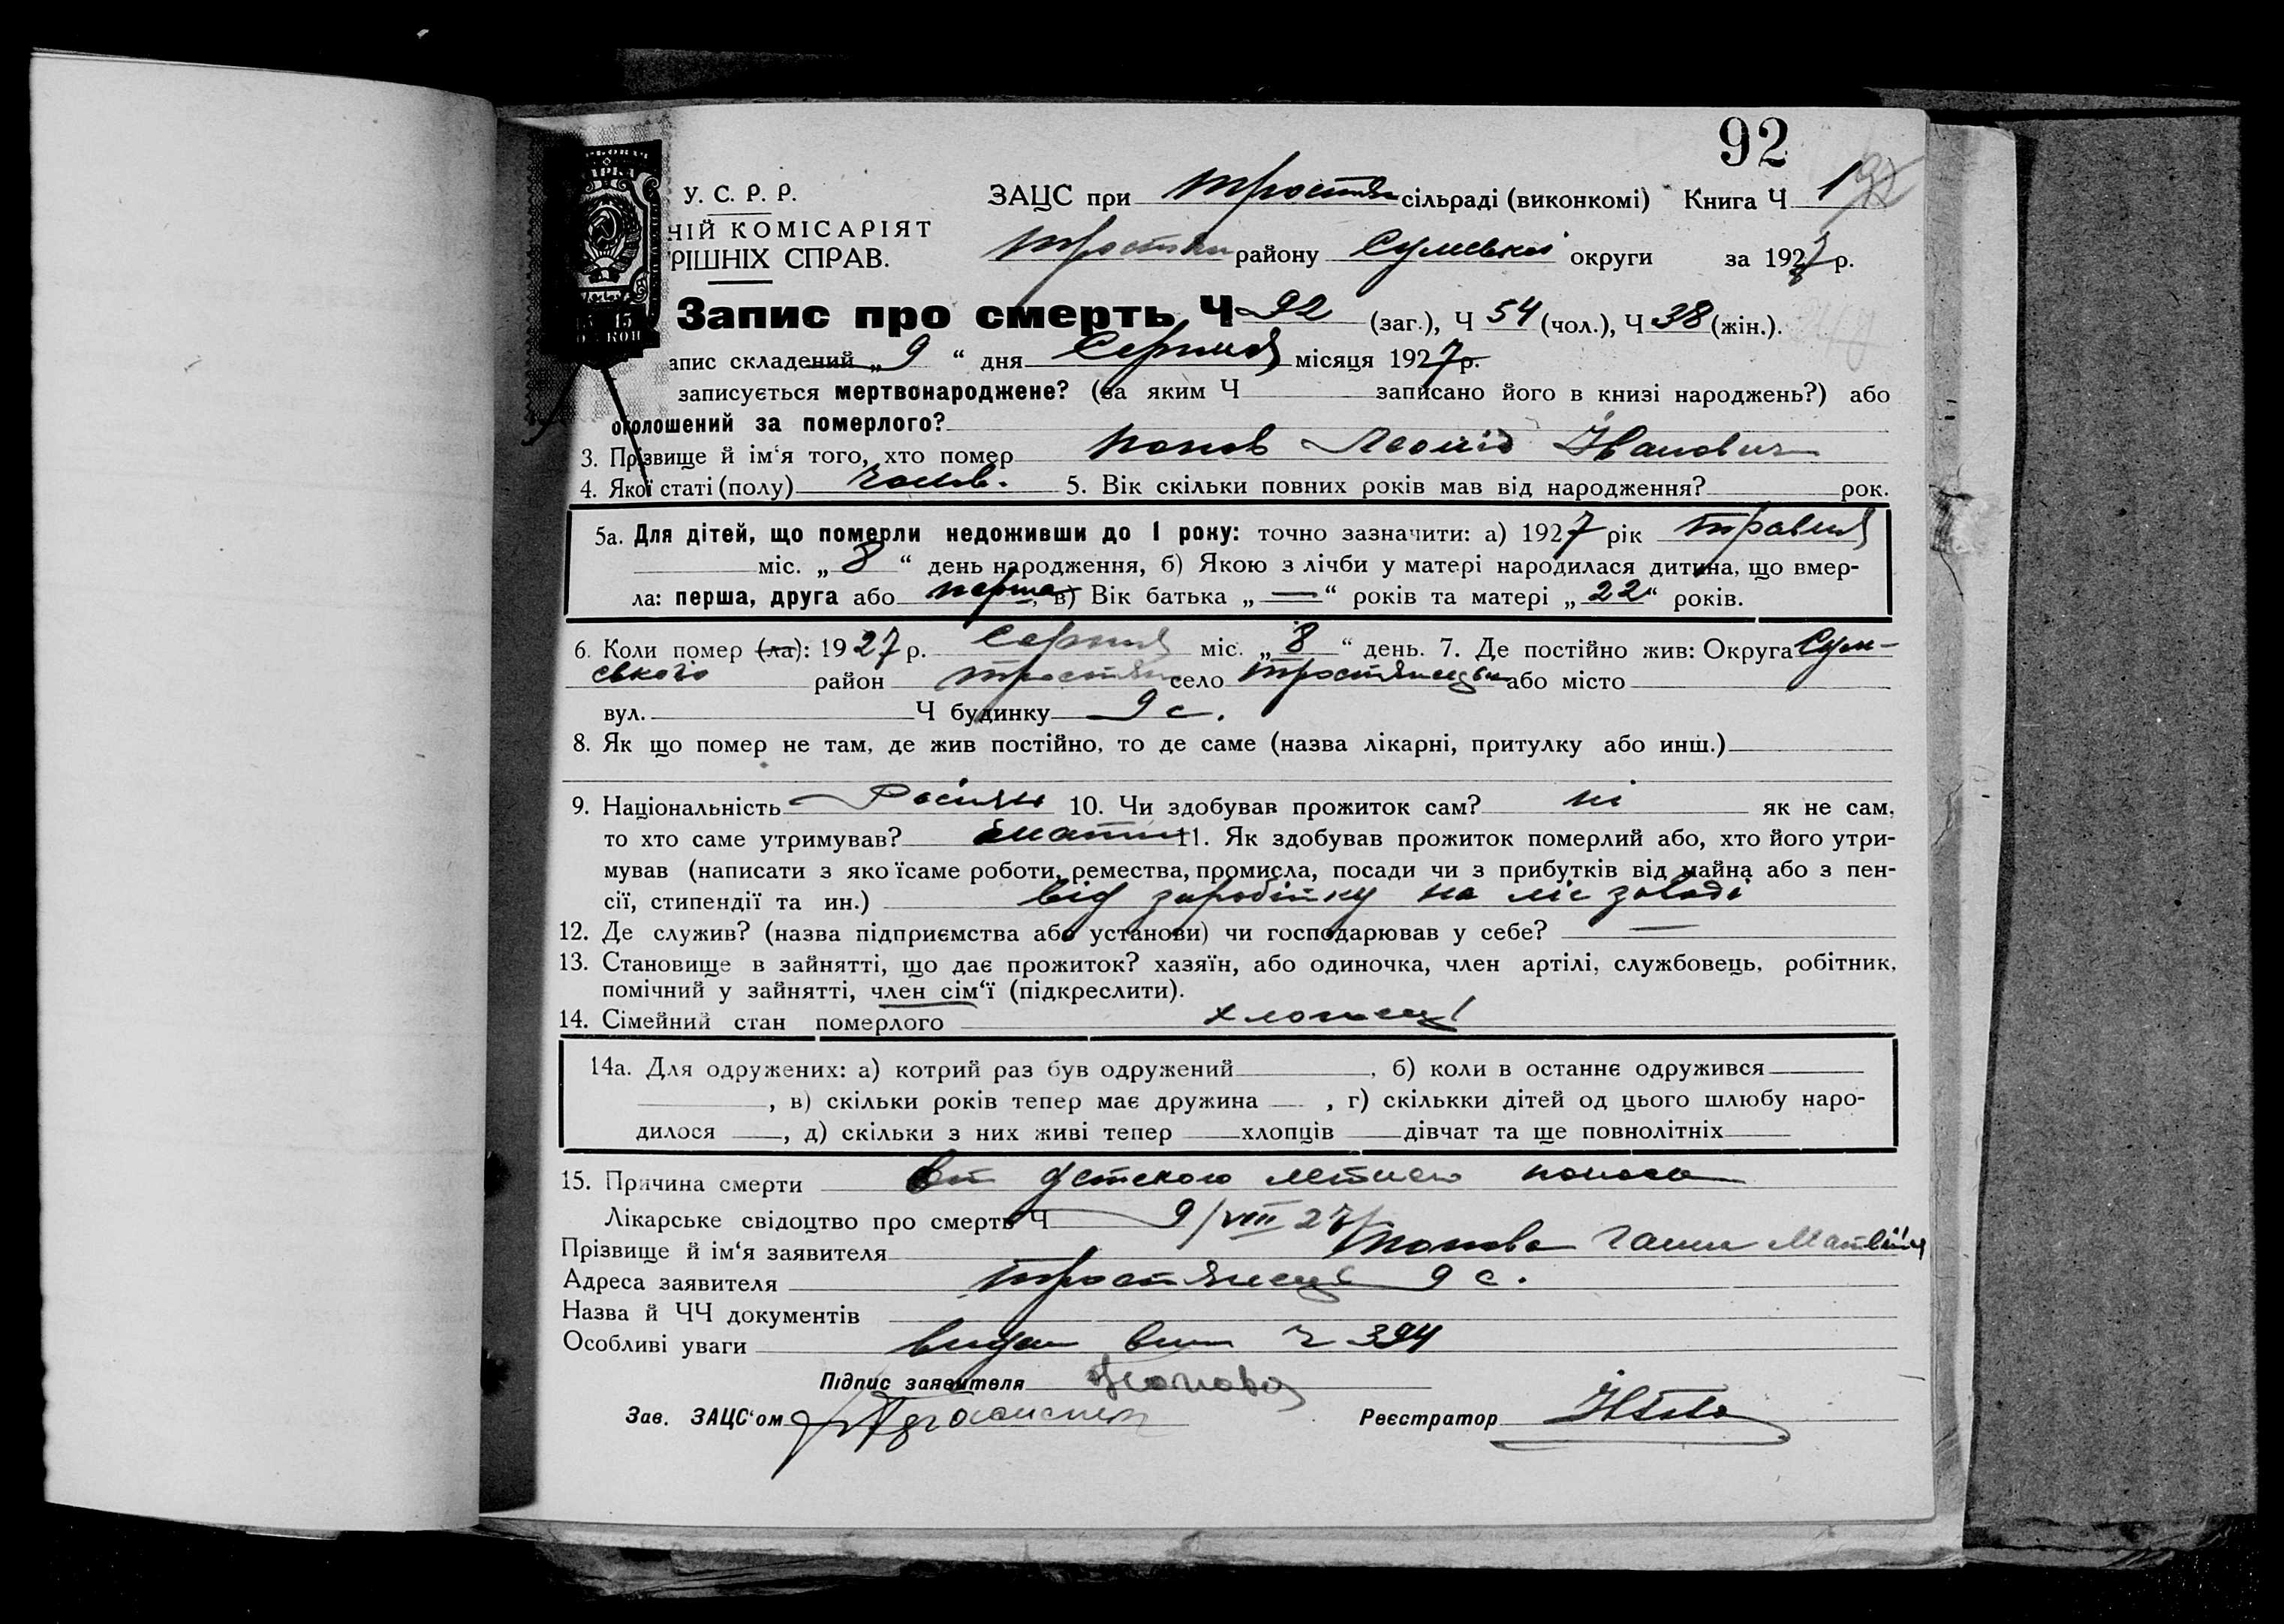 92
У. С. Р. Р. ЗАЦС при Тростян сільраді (виконкомі) Книга Ч 1
НІЙ КОМІСАРІЯТ
РІШНІХ СПРАВ.
Тростян району Сумської округи за 1927 р.
15 КОП
Запис про смерть Ч 92 (заг.), Ч 54 (чол.), Ч 38 (жін.).
апис складений „ 9 “ дня Серпня місяця 1927 р.
записується мертвонароджене? (за яким Ч записано його в книзі народжень?) або
оголошений за померлого?
3. Прізвище й ім‘я того, хто помер Попов Леонід Іванович
4. Якої статі (полу) чолов. 5. Вік скільки повних років мав від народження? рок.
5а. Для дітей, що померли недоживши до 1 року: точно зазначити: а) 1927 рік травня
міс. „ 8 “ день народження, б) Якою з лічби у матері народилася дитина, що вмер-
ла: перша, друга або перша, в) Вік батька „ — “ років та матері „ 22 “ років.
6. Коли помер (ла): 1927 р. Серпня міс. „ 8 “ день. 7. Де постійно жив: Округа Сум-
ського район Тростян село Тростянець або місто
вул. Ч будинку 9 с.
8. Як що помер не там, де жив постійно, то де саме (назва лікарні, притулку або инш.)
9. Національність Росіян 10. Чи здобував прожиток сам? ні як не сам,
то хто саме утримував? мати 11. Як здобував прожиток померлий або, хто його утри-
мував (написати з яко їсаме роботи, ремества, промисла, посади чи з прибутків від майна або з пен-
сії, стипендії та ин.) від заробітку на ліс заводі
12. Де служив? (назва підприємства або установи) чи господарював у себе? —
13. Становище в зайнятті, що дає прожиток? хазяїн, або одиночка, член артілі, службовець, робітник,
помічний у зайнятті, член сім‘ї (підкреслити).
14. Сімейний стан померлого хлопець
14а. Для одружених: а) котрий раз був одружений , б) коли в останнє одружився
, в) скільки років тепер має дружина , г) скількки дітей од цього шлюбу наро-
дилося , д) скільки з них живі тепер хлопців дівчат та ще повнолітніх
15. Причина смерти От детского летнего поноса
Лікарське свідоцтво про смерть Ч 9/VIII 27
Прізвище й ім‘я заявителя Попова Ганна Матвіїв
Адреса заявителя Тростянець 9 с.
Назва й ЧЧ документів
Особливі уваги видан вип ч 394
Підпис заявителя Попова
Зав. ЗАЦС‘ом Реєстратор